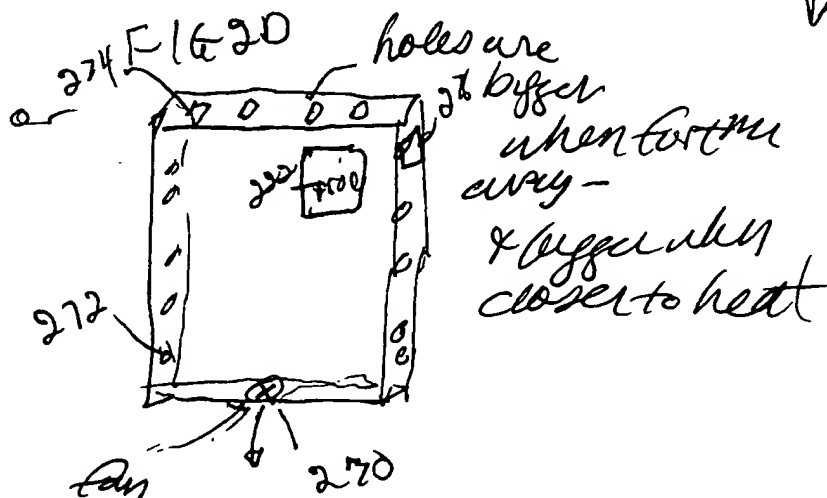 FIG 2D
274
holes are
276 bigger
when further
away -
& bigger when
closer to heat
272
fan
270